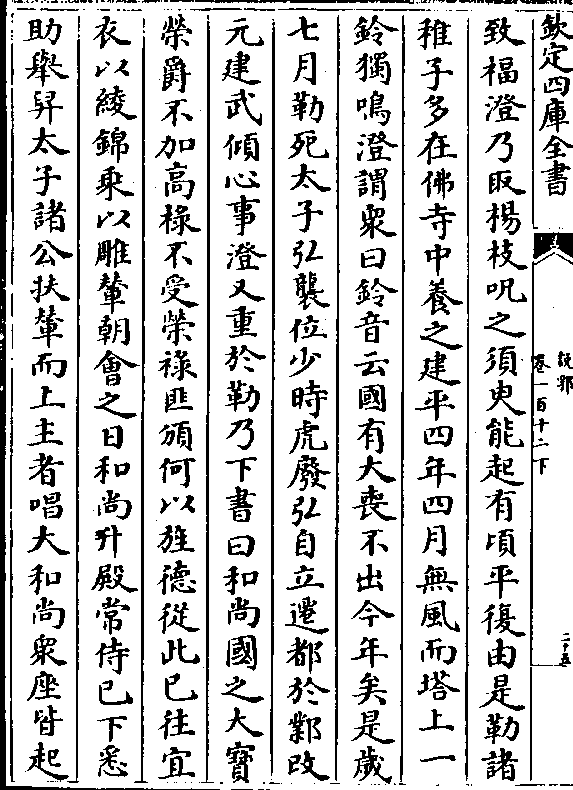 欽定四庫全書
說郛
卷一百十二下
二十五
致福澄乃取楊枝呪之須臾能起有頃平復由是勒諸
稚子多在佛寺中養之建平四年四月無風而塔上一
鈴獨鳴澄謂衆曰鈴音云國有大喪不出今年矣是歲
七月勒死太子弘襲位少時虎廢弘自立遷都於鄴改
元建武傾心事澄又重於勒乃下書曰和尚國之大寶
榮爵不加高祿不受榮祿匪頒何以旌德從此已往宜
衣以綾錦乗以雕輦朝會之日和尚升殿常侍已下悉
助舉舁太子諸公扶輦而上主者唱大和尚衆座皆起